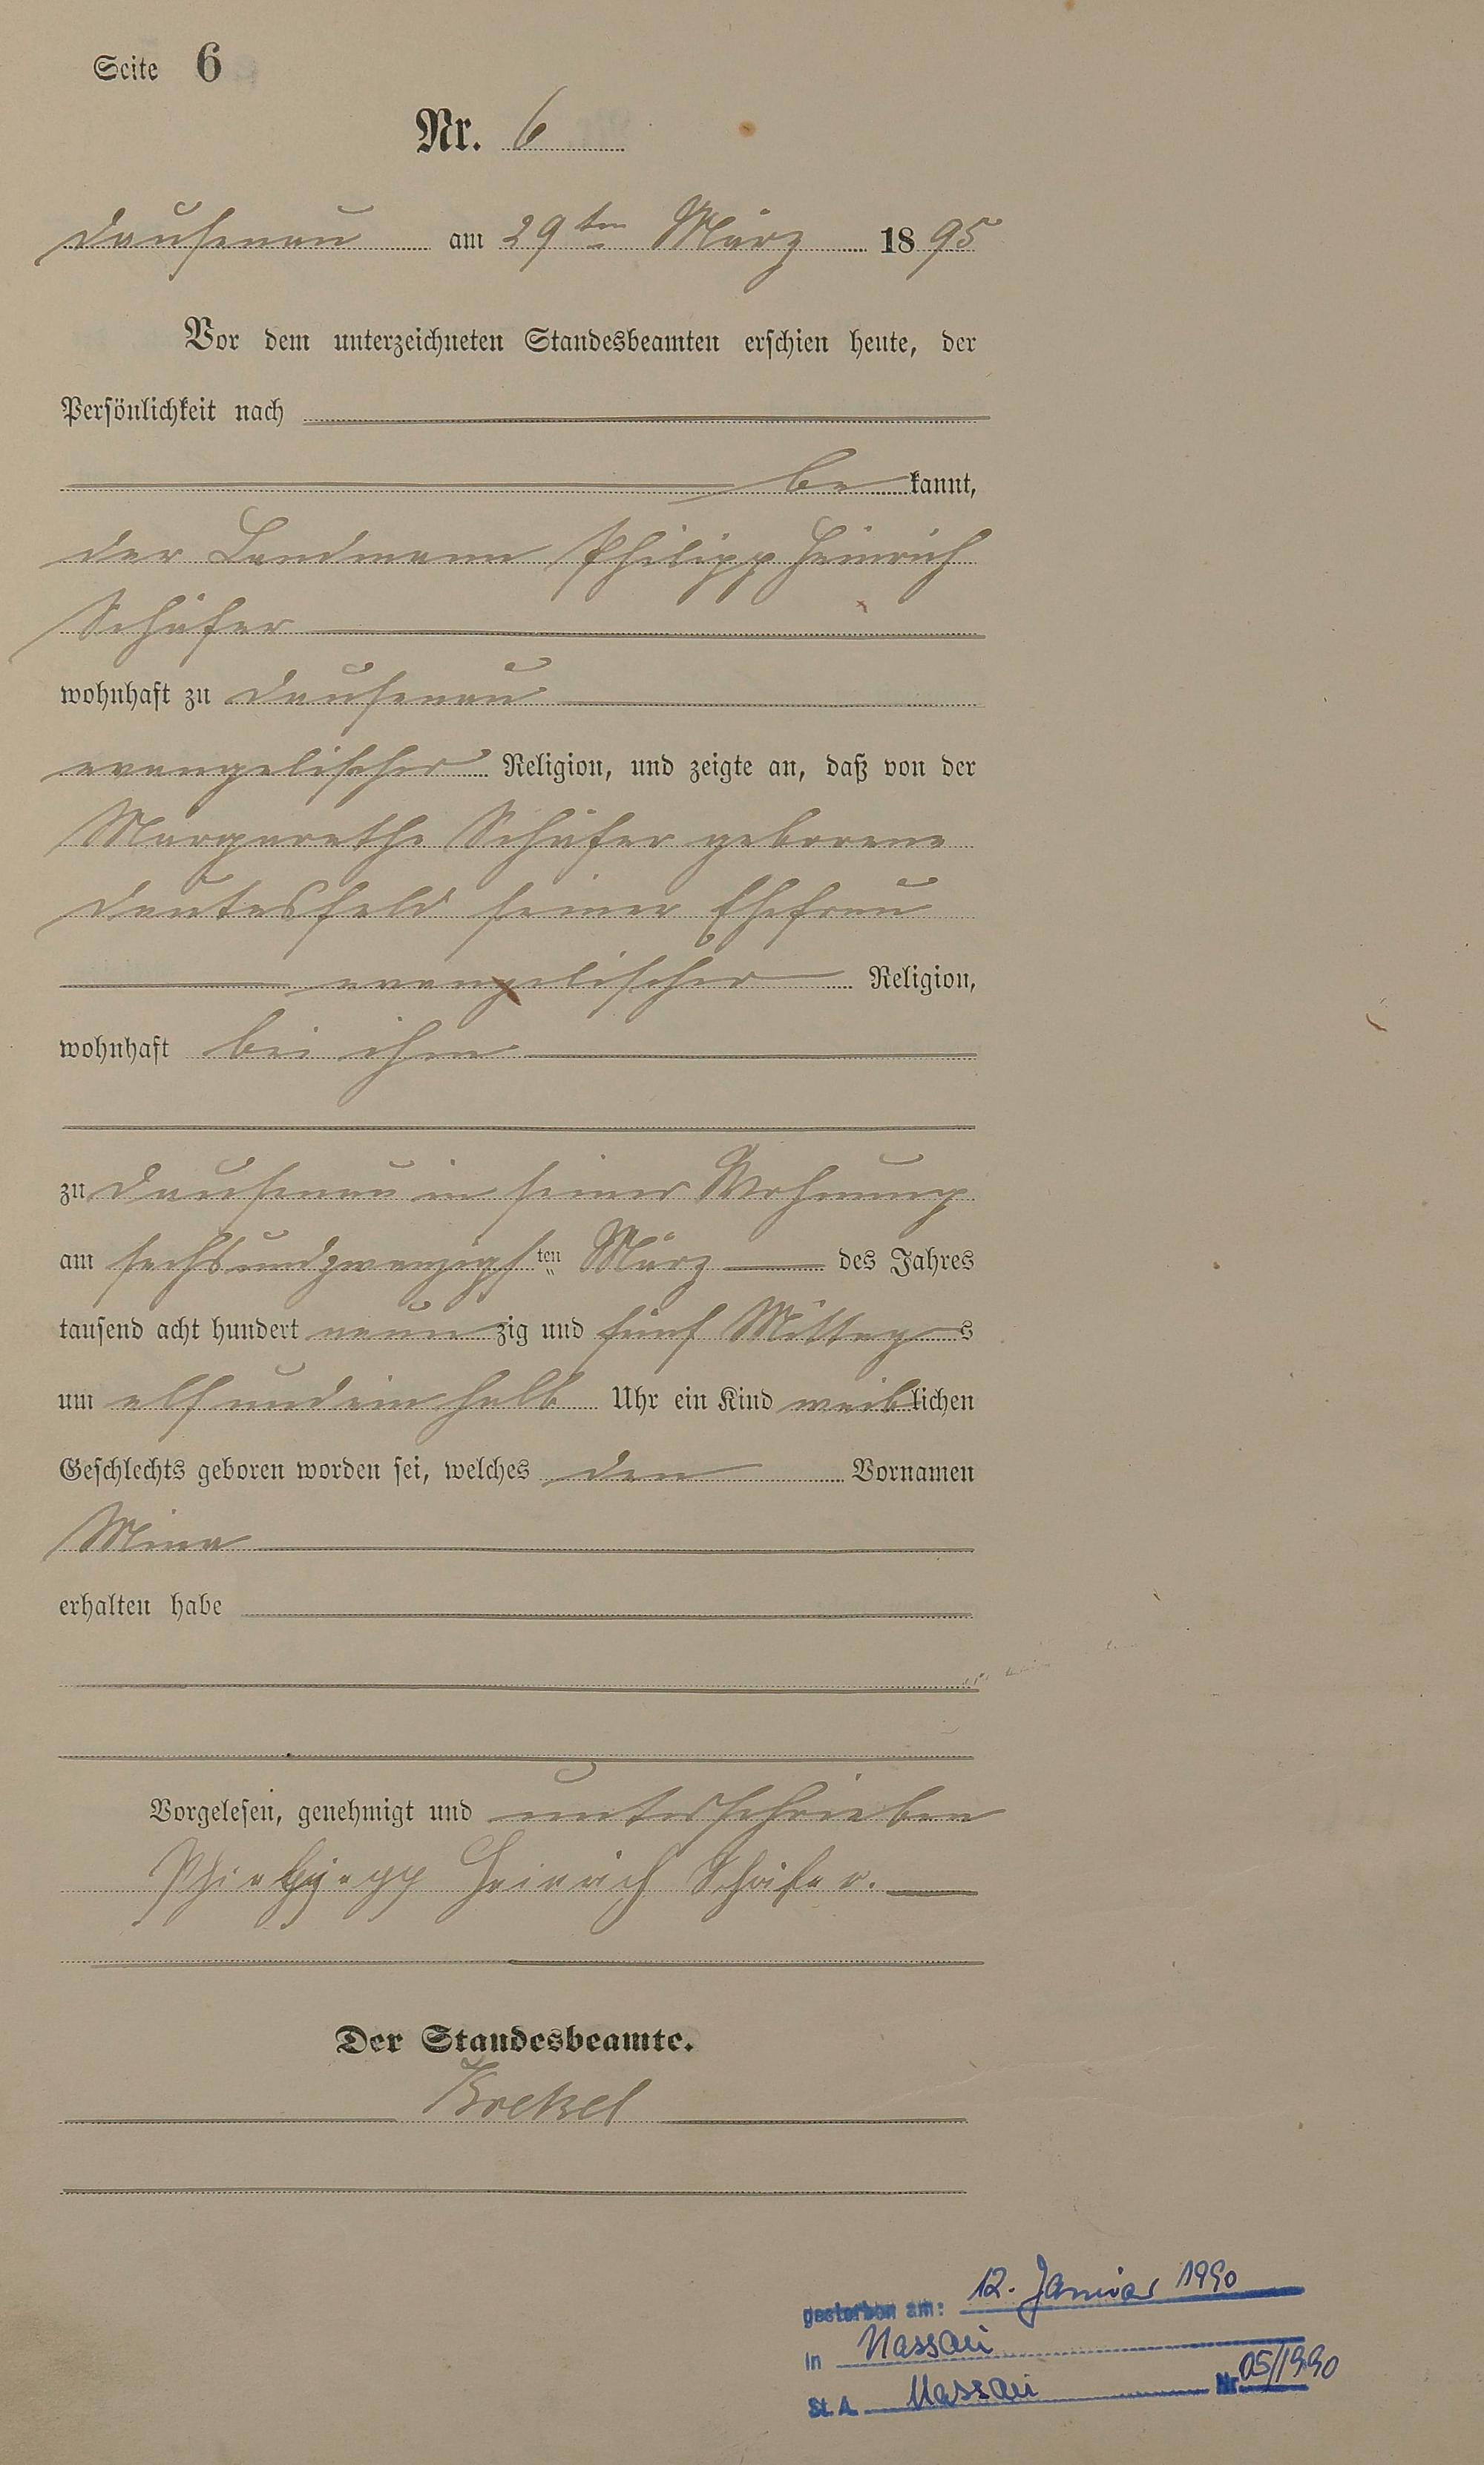 Seite 6
Nr. 6
Dausenau am 29ten März 1895
Vor dem unterzeichneten Standesbeamten erschien heute, der
Persönlichkeit nach
be kannt,
der Landmann Philipp Heinrich
Schäfer
wohnhaft zu Dausenau
evangelischer Religion, und zeigte an, daß von der
Margarethe Schäfer geborene
Deutesfeld seiner Ehefrau
evangelischer Religion,
wohnhaft bei ihm
zu Dausenau in seiner Wohnung
am sechsundzwanzigsten März des Jahres
tausend acht hundert neunzig und fünf Mittags
um elf und ein halb Uhr ein Kind weiblichen
Geschlechts geboren worden sei, welches den Vornamen
Mina
erhalten habe
Vorgelesen, genehmigt und unterschrieben
Heinrich Schäfer.
Der Standesbeamte.
gestorben am: 12. Januar 1990
in Nassau
St. A. Nassau Nr. 05/1990